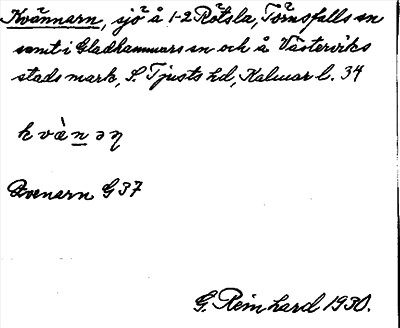 Kvännarn, sjö å 1-2 Rötsla, Törnsfalls sn
samt i Gladhammars sn och å Västerviks
stads mark, S. Tjusts hd, Kalmar l. 34
kvànəη
Qvenarn G37
G. Reinhard 1930.